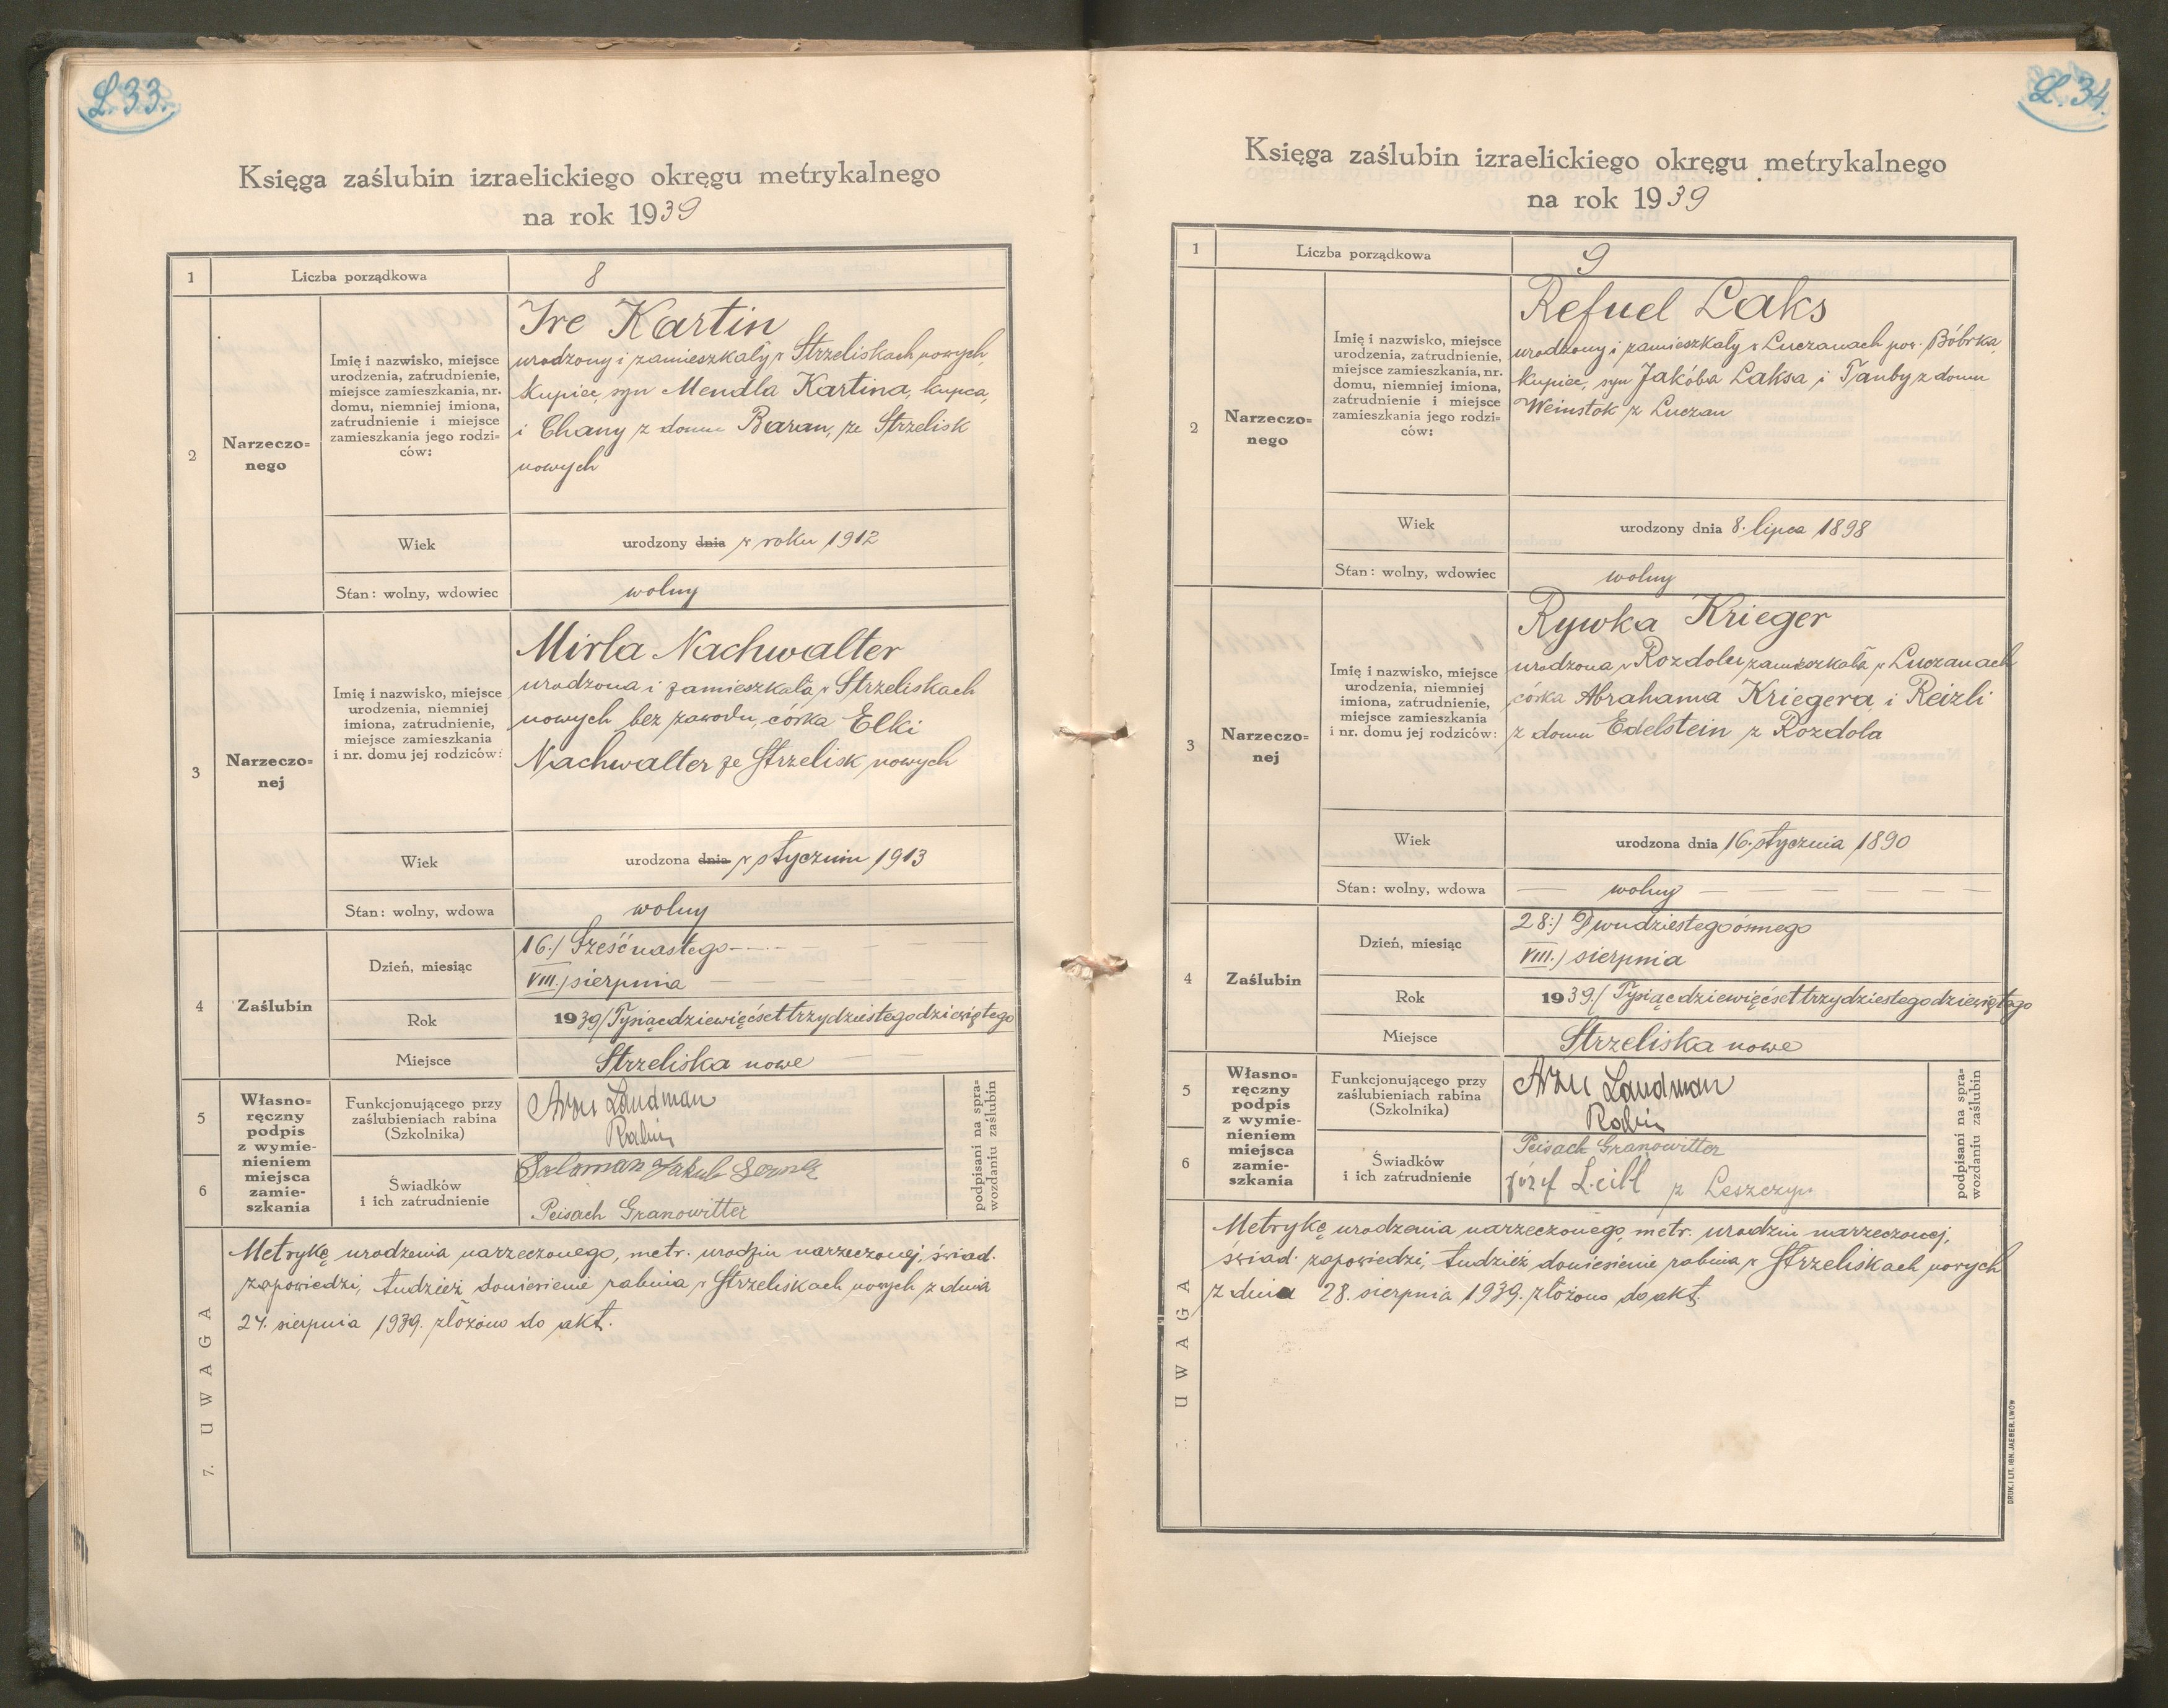 L.33.
Księga zaślubin izraelickiego okręgu metrykalnego
na rok 1939
1
Liczba porządkowa
8
2
Narzeczo=
nego
Imię i nazwisko, miejsce
urodzenia, zatrudnienie,
miejsce zamieszkania, nr.
domu, niemniej imiona,
zatrudnienie i miejsce
zamieszkania jego rodzi=
ców:
Ire Kartin
urodzony i zamieszkały w Strzeliskach nowych,
kupiec, syn Mendla Kartina, kupca,
i Chany z domu Baran, ze Strzelisk
nowych
Wiek
urodzony dnia w roku 1912
Stan: wolny, wdowiec
wolny
3
Narzeczo=
nej
Imię i nazwisko, miejsce
urodzenia, niemniej
imiona, zatrudnienie,
miejsce zamieszkania
i nr. domu jej rodziców:
Mirla Nachwalter
urodzona i zamieszkała w Strzeliskach
nowych, bez zawodu, córka Elki
Nachwalter ze Strzelisk nowych
Wiek
urodzona dnia w styczniu 1913
Stan: wolny, wdowa
wolny
4
Zaślubin
Dzień, miesiąc
16./ Sześćnastego
VIII./ sierpnia
Rok
1939/ Tysiącdziewięćset trzydziestegodziewiętego
Miejsce
Strzeliska nowe
5
6
Własno=
ręczny
podpis
z wymie=
nieniem
miejsca
zamie=
szkania
Funkcjonującego przy
zaślubieniach rabina
(Szkolnika)
Landman
Rabin
Świadków
i ich zatrudnienie
Salomon Jakub
Peisach Granowitter
podpisani na spra=
wozdaniu zaślubin
7. UWAGA
Metrykę urodzenia narzeczonego, metr. urodzin narzeczonej, świad.
zapowiedzi, tudzież doniesienie rabina w Strzeliskach nowych z dnia
24. sierpnia 1939. złożono do akt.
L.34.
Księga zaślubin izraelickiego okręgu metrykalnego
na rok 1939
1
Liczba porządkowa
9
2
Narzeczo=
nego
Imię i nazwisko, miejsce
urodzenia, zatrudnienie,
miejsce zamieszkania, nr.
domu, niemniej imiona,
zatrudnienie i miejsce
zamieszkania jego rodzi=
ców:
Refuel Laks
urodzony i zamieszkały w Luczanach pow. Bóbrka,
kupiec, syn Jakóba Laksa i Tauby z domu
Weinstok z Luczan
Wiek
urodzony dnia 8. lipca 1898
Stan: wolny, wdowiec
wolny
3
Narzeczo=
nej
Imię i nazwisko, miejsce
urodzenia, niemniej
imiona, zatrudnienie,
miejsce zamieszkania
i nr. domu jej rodziców:
Rywka Krieger
urodzona w Rozdolu, zamieszkała w Luczanach
córka Abrahama Kriegera i Reizli
z domu Edelstein z Rozdola
Wiek
urodzona dnia 16. stycznia 1890
Stan: wolny, wdowa
wolny
4
Zaślubin
Dzień, miesiąc
28./ Dwudziestegoósmego
VIII./ sierpnia
Rok
1939./ Tysiącdziewięćset trzydziestegodziewiętego
Miejsce
Strzeliska nowe
5
6
Własno=
ręczny
podpis
z wymie=
nieniem
miejsca
zamie=
szkania
Funkcjonującego przy
zaślubieniach rabina
(Szkolnika)
Landman
Rabin
Świadków
i ich zatrudnienie
Peisach Granowitter
Józef Leibl z Leszczyn
podpisani na spra=
wozdaniu zaślubin
UWAGA
Metrykę urodzenia narzeczonego, metr. urodzin narzeczonej,
świad. zapowiedzi, tudzież doniesienie rabina w Strzeliskach nowych
z dnia 28. sierpnia 1939. złożono do akt.
DRUK. I LIT. IGN. JAEGER, LWÓW